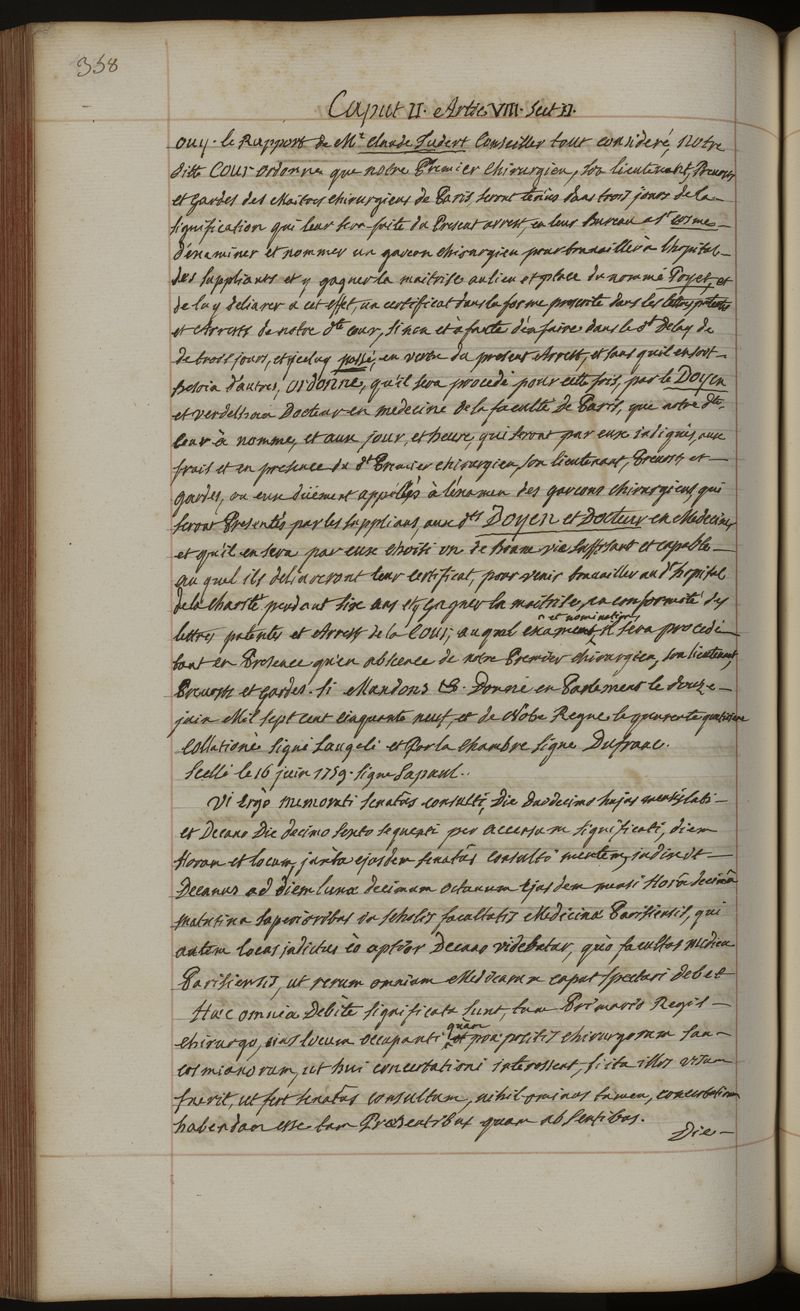 358
Caput II. Artic VIII. Sect II.
ouy. le Rapport de Mr. Claude Tudert Conseiller tout consideré, Notre
ditte Cour ordonne que notre Premier chirurgien, son lieutenant, Prevosts
et gardes des Maitres chirurgiens de Paris, seront tenus dans trois jours de la
signification qui leur sera faite du Present arrest, en leur Bureau a st cosme
d'éxaminer et nommer un garcon chirurgien pour travailler à l'hopital
des supplians et y gagner la maitrise au lieu et place du nommé Poyet, et
de luy delivrer à cet effet, un certificat dans la forme prescrite dans les lettres patentes
et Arrests de notre dte cour, sinon et à faute d'en faire dans le dt delay de
de trois jours, et iceluy passé, en vertu du present Arrest, et sans qu'il en soit
Besoin d'autres, ordonne, qu'il sera procedé pour cette fois, par le Doyen
et verdelhan Docteur en medecine de la faculté de Paris, que notre dte.
Cour à nommé, et aux jour, et heure, qui seront par eux indiqués, aux
frais et en presence du dt Premier chirurgien, son lieutenant, Prevosts et
gardes, ou eux düement appellés à l'éxamen des garcons chirurgiens qui
seront Presentés par les supplians, aux dts Doyen et Docteur en Medecine
et qu'il en sera par eux choisi un de bonne vie suffisant et capable
au quel ils delivreront leur certificat, pour venir travailler au dt hopital
de la charité pendant six ans et y gagner la maitrise, en conformité des
lettres patentes et Arrests de la Cour, auquel examen ^ et nomination il sera procedé
tant en Presence qu'en abscence de notre Premier chirurgien, son lieutenant,
Prevosts et gardes. si Mandons &. Donné en Parlement le douze
juin Mil sept cent cinquante neuf et de Notre Regne le quarante quatrieme
Collationé signé Langelé et Par la chambre signé Dufranc.
scellé le 16 juin 1759. signé Sapaul..
Vi ergo memorati senatûs consulti, Die duodecimo hujus mensis lati
et Decano Die decimo sexto sequenti per accensum significati, diem
Horam et locum, juxta ejusdem senatûs consulti mentem, indixit
Decanus ad diem lunæ decimam octavam ejusdem mensi Horâ decimâ
matutina superioribus in scholis facultatis Medicinæ Parisiensis, qui
autem locus indictus eò aptior Decano videbatur, quò facultas medica
Parisiensis, ut rerum omnium Medicarum caput spectari debet
Hæc omnia Debite significata sunt, tum Primario Regis
chirurgo, ejus locum occupanti quàm præpositis chirurgorum san-
cosmianorum, ut huic concertationi interessent, si ita illis visum
fuerit, ut fert senatûs consultum, nihil ominus tamen, concertationem
habendam esse tam Præsentibus quam absentibus.
Die